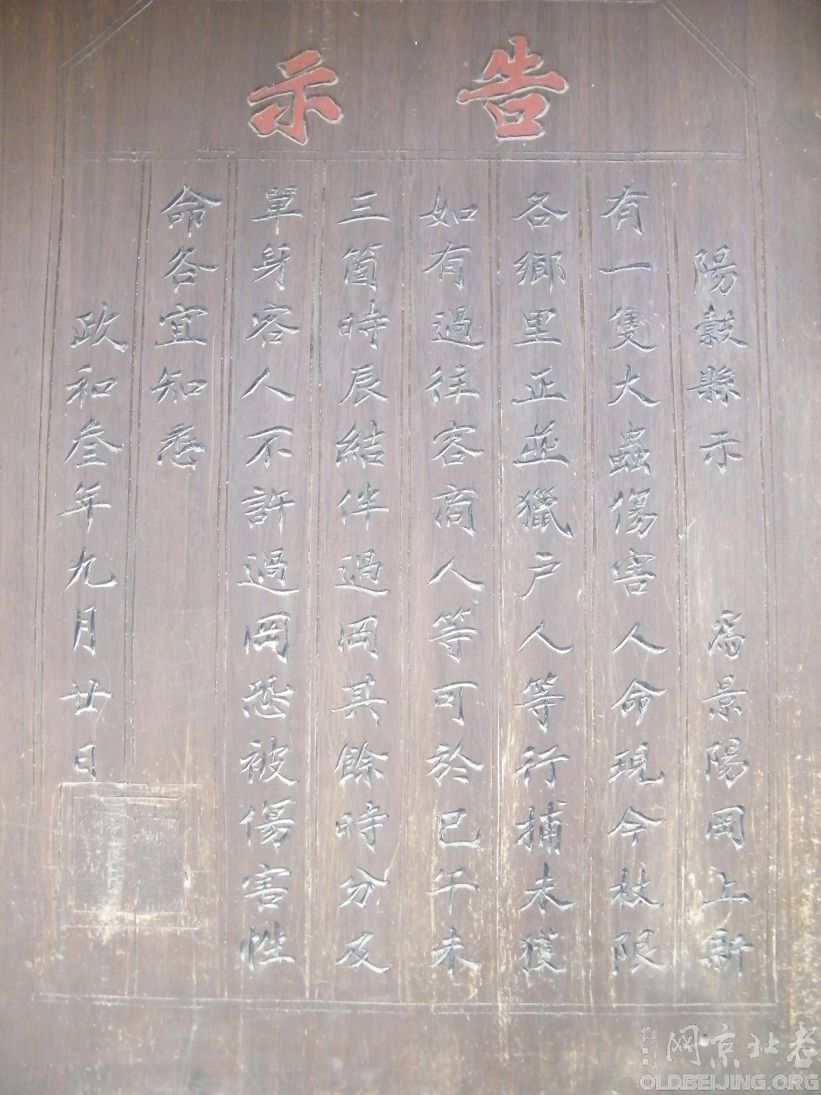 告示
陽穀縣示 為景陽岡上新
有一隻大蟲傷害人命現今杖限
各鄉里正並獵户人等行捕未獲
如有過往客商人等可於巳午未
三箇時辰結伴過岡其餘時分及
單身客人不許過岡恐被傷害性
命各宜知悉
政和叁年九月廿日
老北京网
OLDBEIJING.ORG